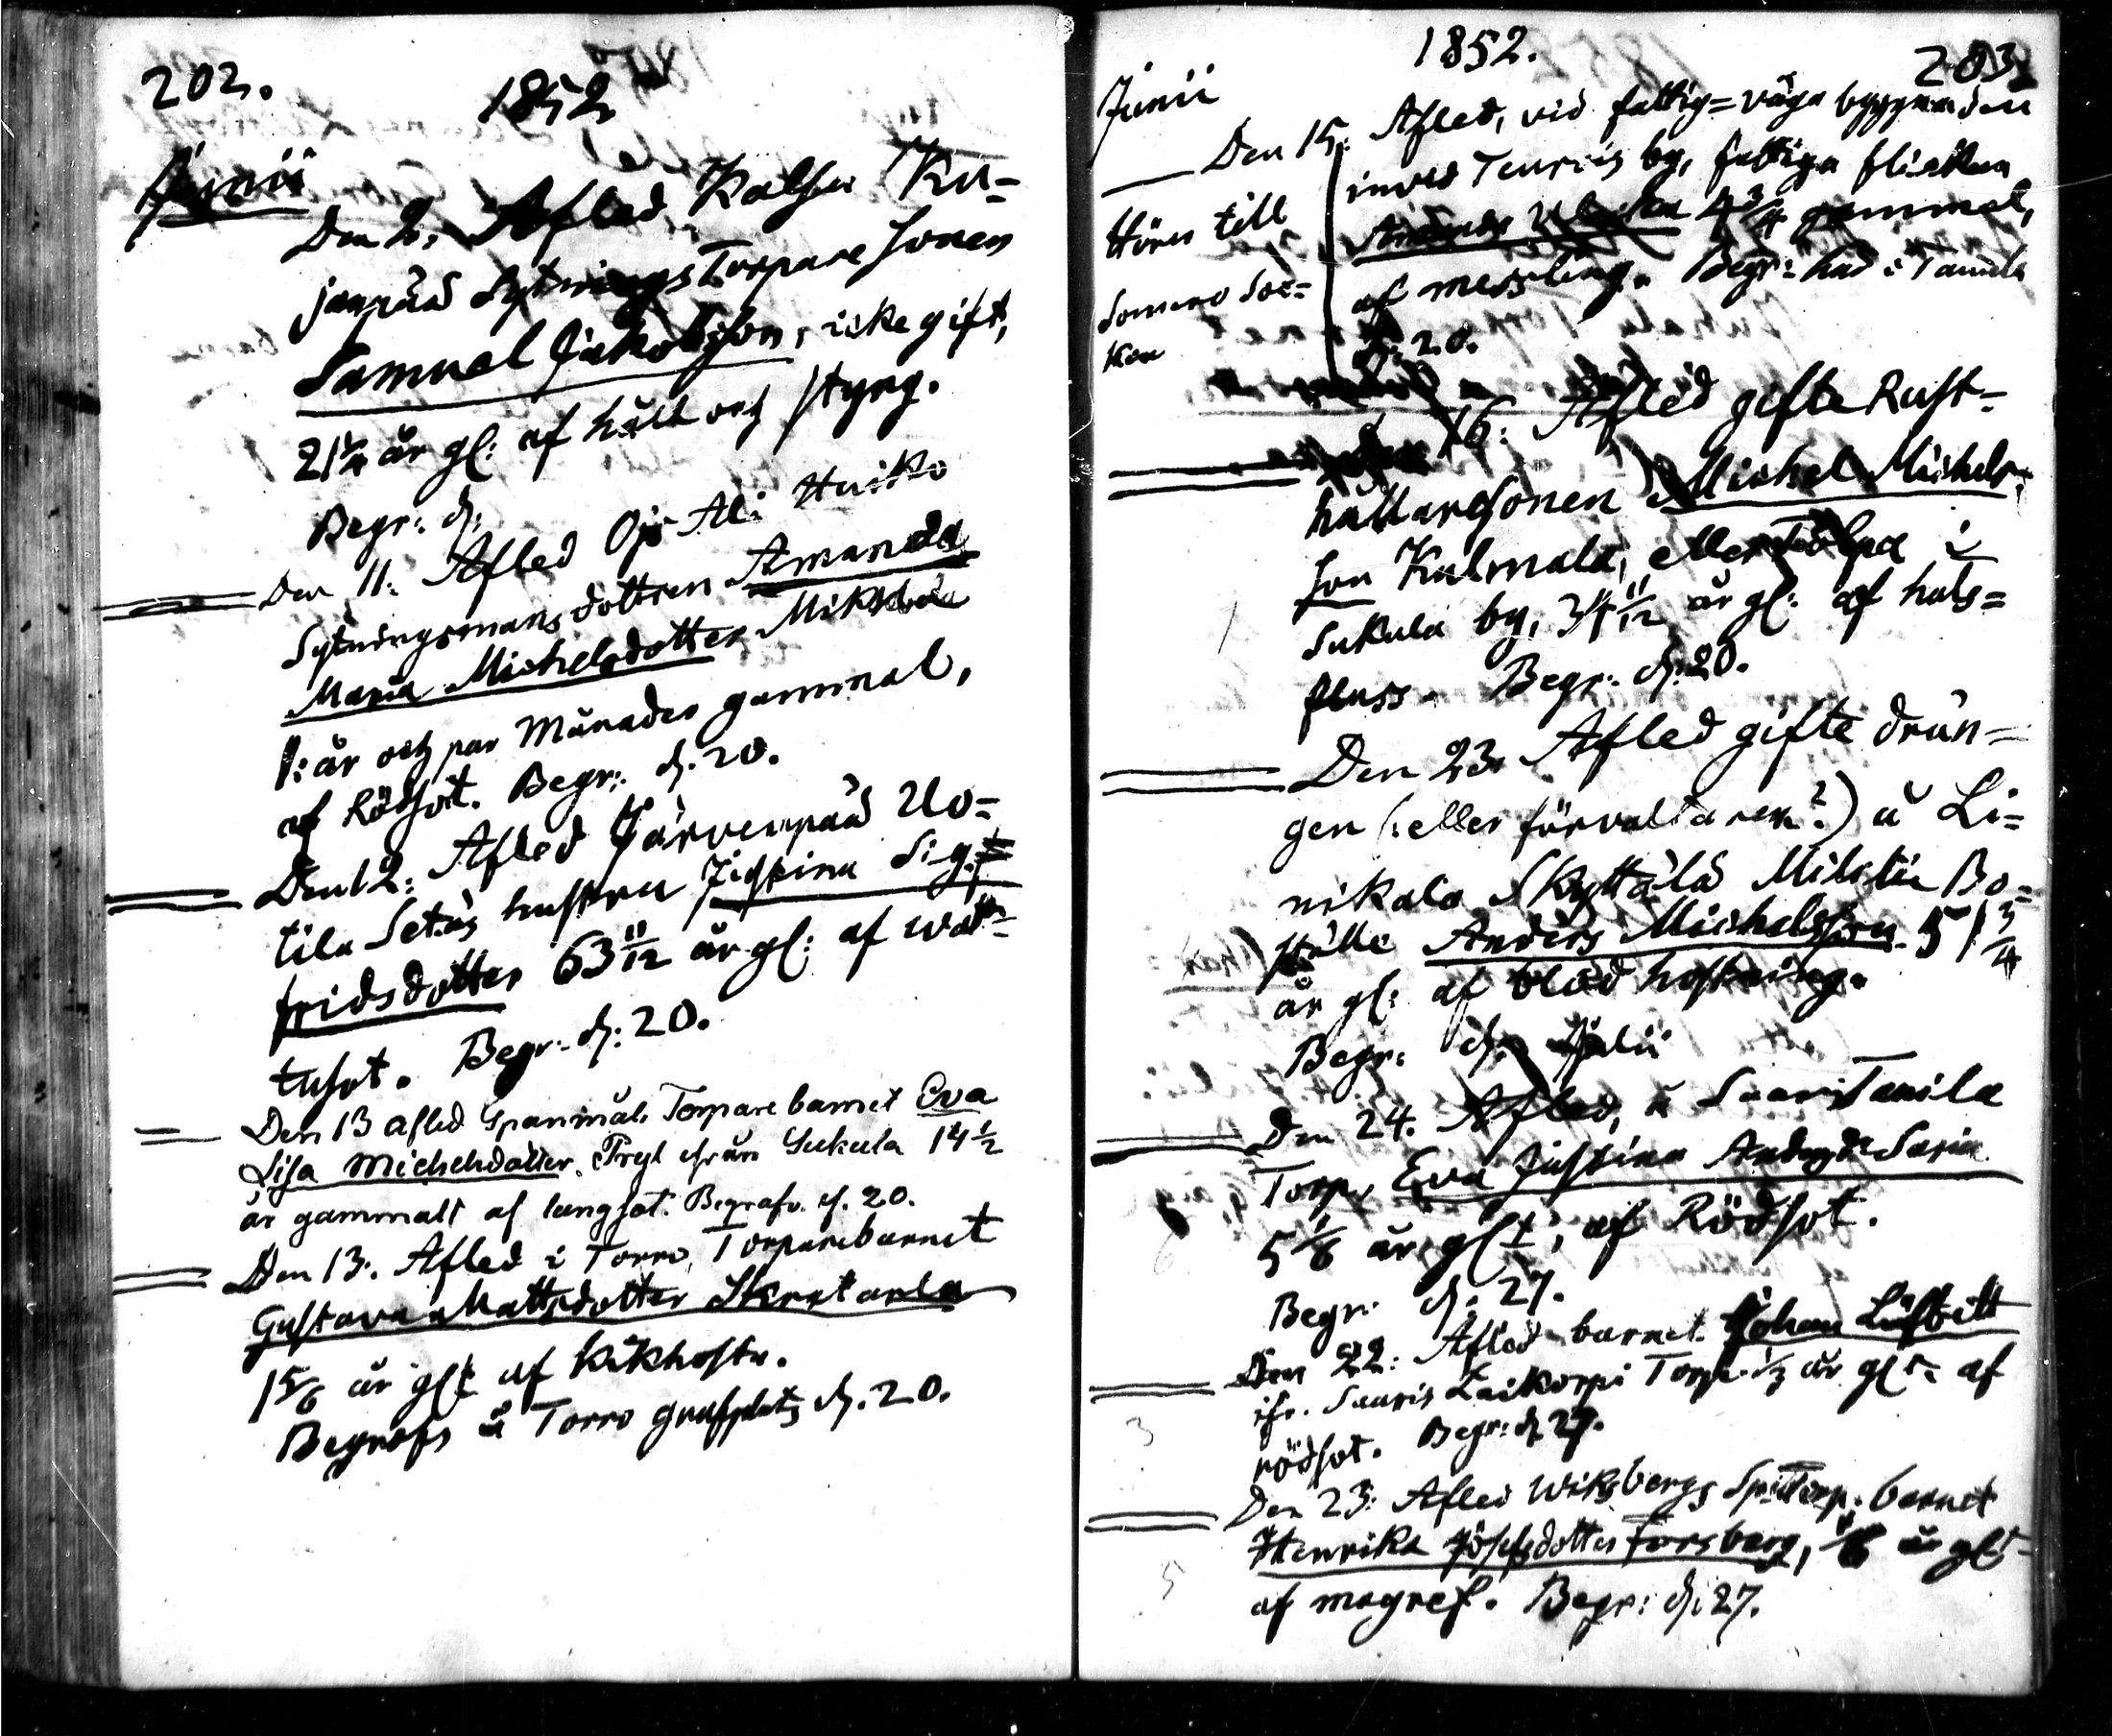 202.
1852
Junii
Den 2. Afled Kalfsu Ku=
janpää Sytnings Torpare sonen
Samuel Jakobsson, icke gift,
21 1/4 år gl: af håll och styng.
Begr: d:
Den 11. Afled Ojo Ali Huiko
Sytningsmans dottren Amanda
Maria Michelsdotter Mikkola
1: år och par Månader gammal,
af Rödsot. Begr: d: 20.
Den 12: Afled Järvenpää Uo=
tila Setäs hustru Justina Sig=
fridsdotter 63 11/12 år gl: af wat=
tusot. Begr: d: 20.
Den 13 afled Torpare barnet Eva
Lisa Michelsdotter från Sukula 14 1/2
år gammalt af lungsot. Begrafv. d. 20.
Den 13. Afled i Torro, Torparebarnet
Gustava Mattsdotter
1 5/6 år glt af Kikhosta.
Begrofs å Torro grafplats d. 20.
1852.
203.
Junii
Den 15. Afled, vid fattig=väga byggnaden
invid Teuris by, fattiga flickan
4 3/4 gammal,
af messling. Begr:
d: 20.
Höres till
Somero Soc=
ken
16. Afled gifte Rust=
hållaresonen Michel Michels=
son Kulmala, eller i
Sukula by, 34 11/12 år gl: af hals=
fluss. Begr: d: 20.
Den 23. Afled gifte drän=
gen (: eller förvaltaren?) å Li=
nikala Skyttälä Militie Bo=
ställe Anders Michelsson 51 3/4
år gl: af blodhostning.
Begr: d: Julii
Den 24. Afled, å Saari Tanila
Torp, Eva Justina
5 1/6 år glt, af Rödsot.
Begr: d: 27.
Den 22: Afled barnet Johan
ifr. Saaris Laikorpi Torp. 1/2 år glt af
rödsot. Begr: d 27.
Den 23. Afled Wiksbergs barnet
Henrika Josefsdotter Forsberg, år glt
af magref. Begr: d: 27.
3
5